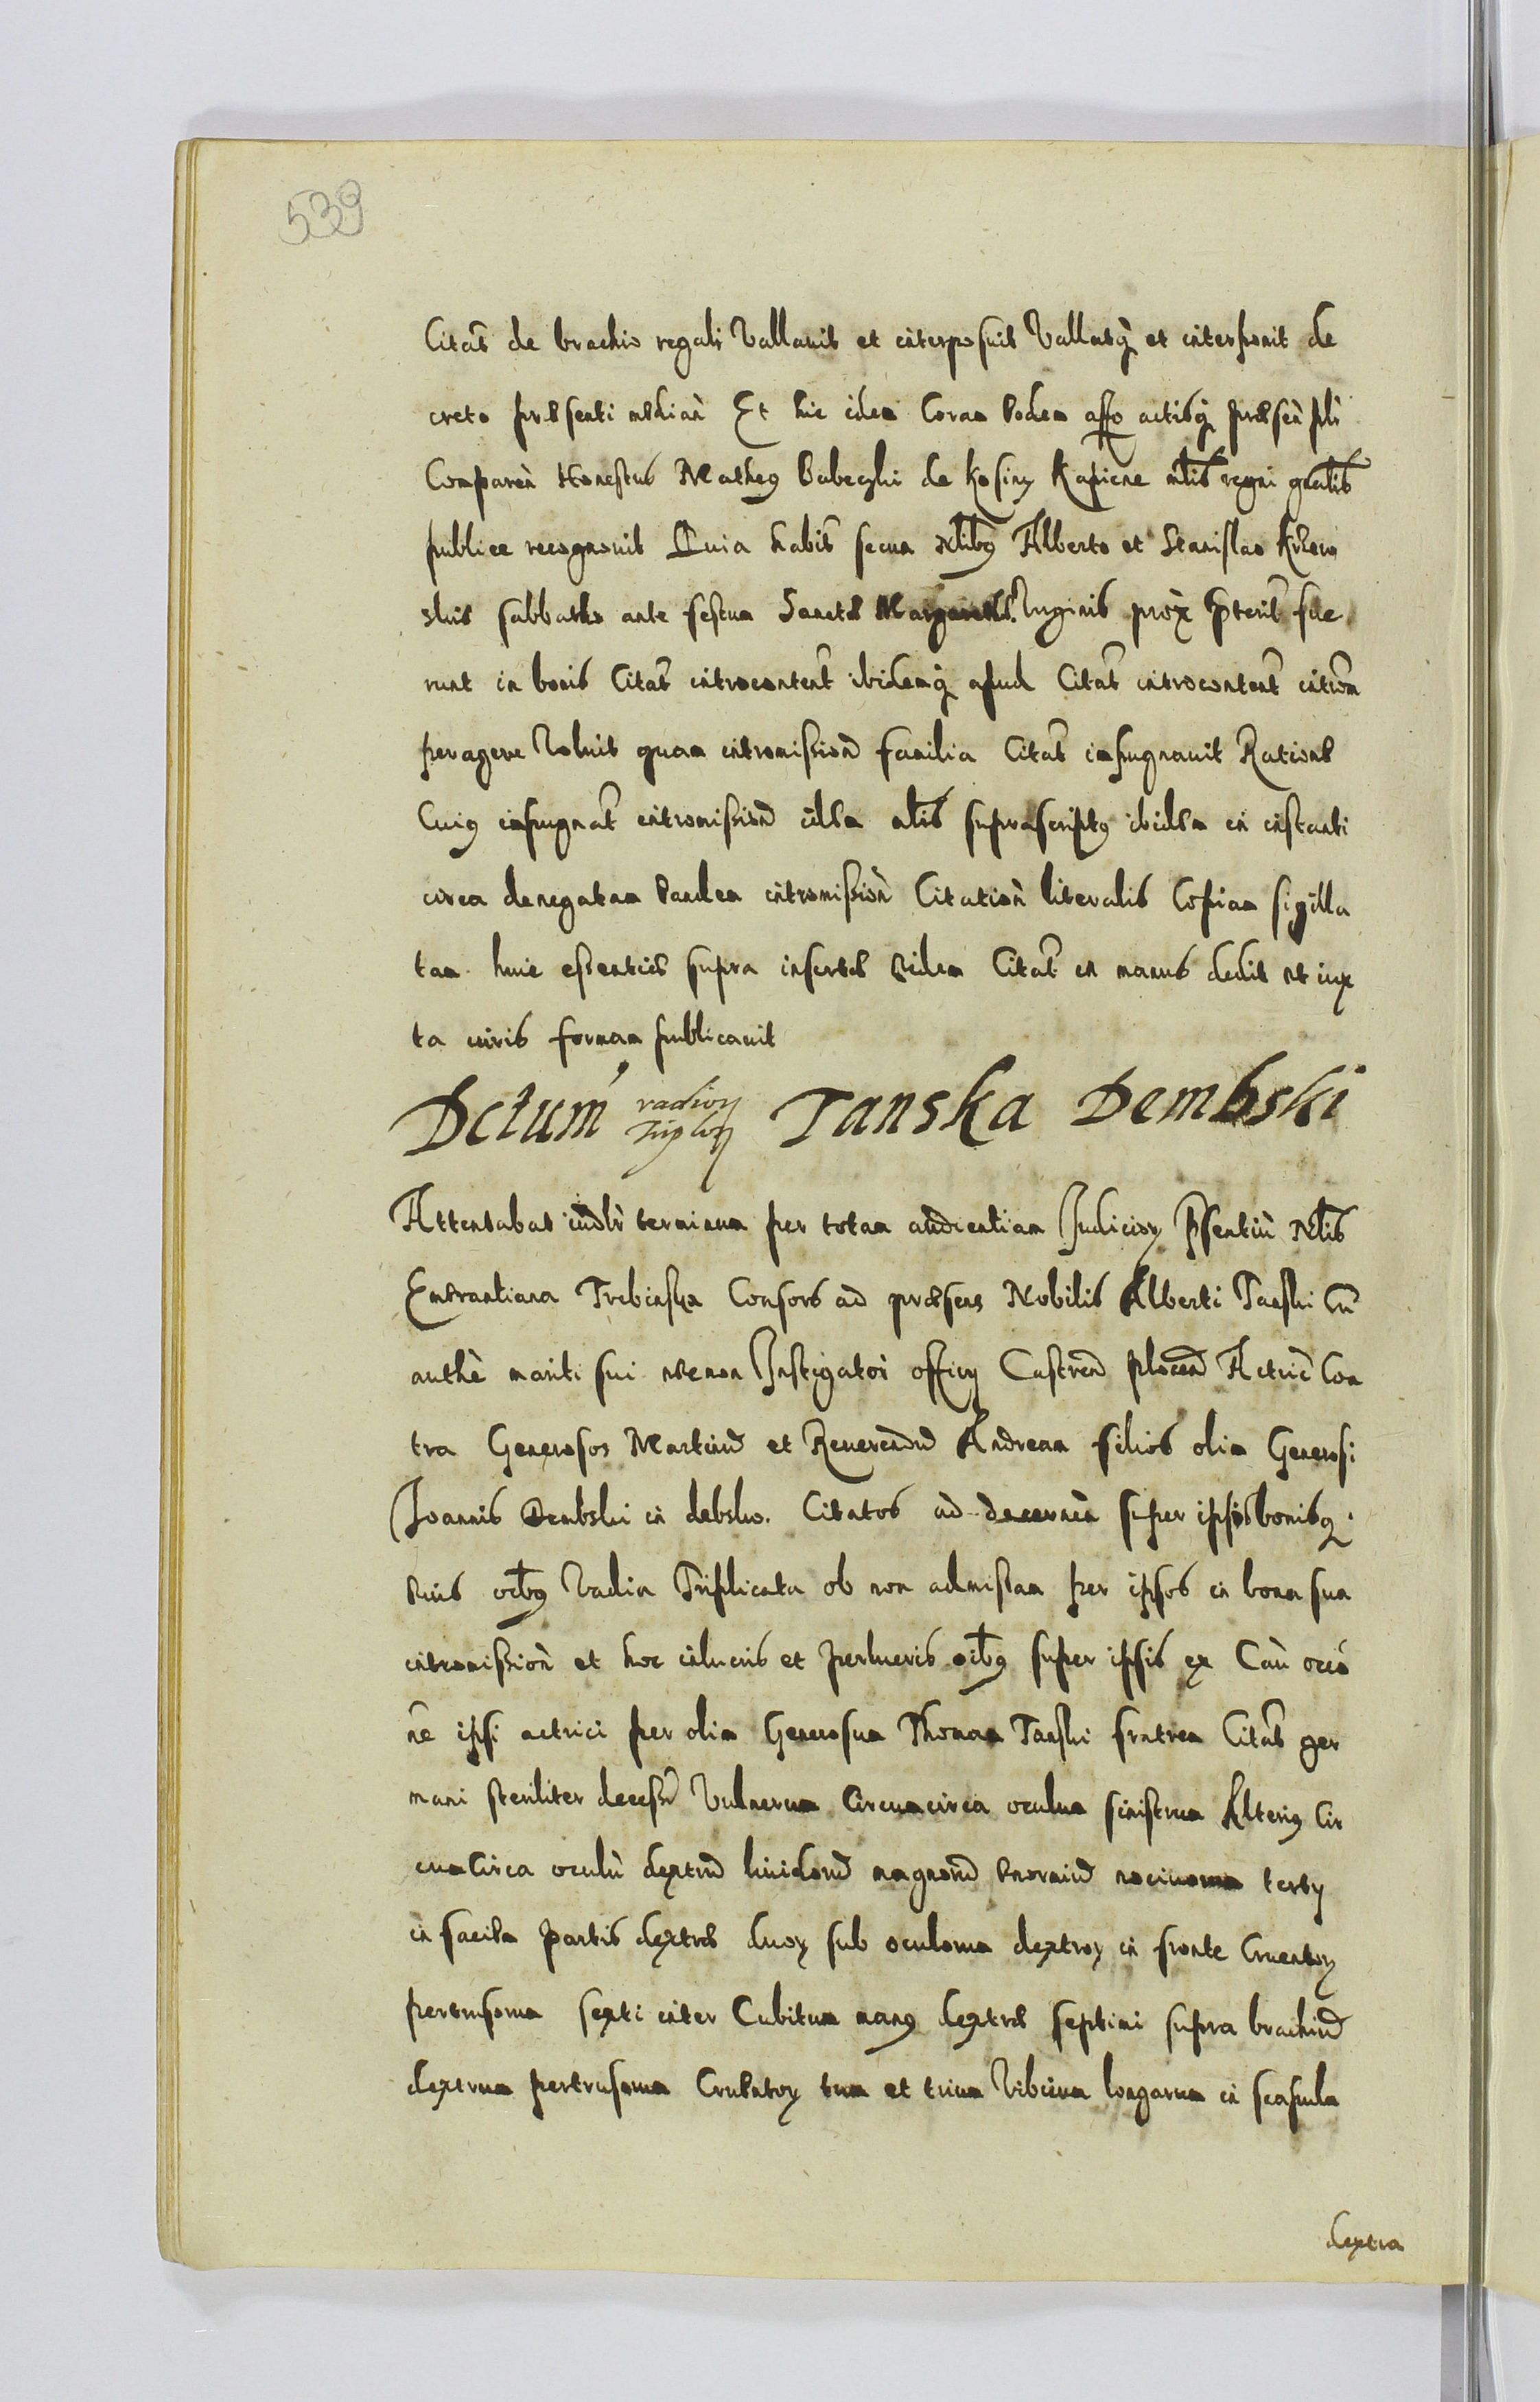 539
Citat de brachio regali Vallavit et interposuit Vallatq et interponit de
creto præsenti median Et hic idem Coram Eodem offo actisq præsen pli
Comparen Honestus Matheg Babeczki de Kosiny Kapicze mlis regni gnalis
publice recognovit Quia habit secum Nlibg Alberto et Stanislao
skis sabbatho ante festum Sanctæ Margarethæ Virginis prox præterit fue
runt in bonis Citat introcontent ibidemq apud Citat introcontent introm
peragere Voluit quam intromission familia Citat impugnavit Ratione
Cuig impugnat intromission idem mlis suprascriptg ibidem in instanti
circa denegatam Eandem intromission Citation literalis Copiam sigilla
tam huic essentiæ supra insertæ Eidem Citat in manus dedit et iux
ta iuris formam publicavit
Dctum vadiorum triplorum Tanska Dembski
Attentabat terminum per totam audientiam Judicior Psentiu Nlis
Tribinska Consors ad præsens Nobilis Alberti Tanski Cu
authe mariti sui necnon Instigator officij Castren plocen Actric Con
tra Generosos Martinu et Reverendu Andream filios olim Generosi
Joannis Dembski in debsko. Citatos ad decernen super ipsis bonisq
suis oibg Vadia Triplicata ob non admissam per ipsos in bona sua
intromission et hoc in lucris et perlucris oibg super ipsis ex Cau occa
ne ipsi actrici per olim Generosum Thomam Tanski fratrem Citat ger
mani steriliter decess Vulnerum Circumcirca oculum sinistrum Alterig Cir
cumcirca oculu dextru lividoru magnoru Enormiu nocivorum tertij
in facie partis dextræ duor sub oculorum dextror in fronte Cruentor
pertrusorum sexti inter Cubitum mang dextræ septimi supra brachiu
dextrum pertrusorum Cruentor trum et trium Vibicum longarum in scapula
dextra